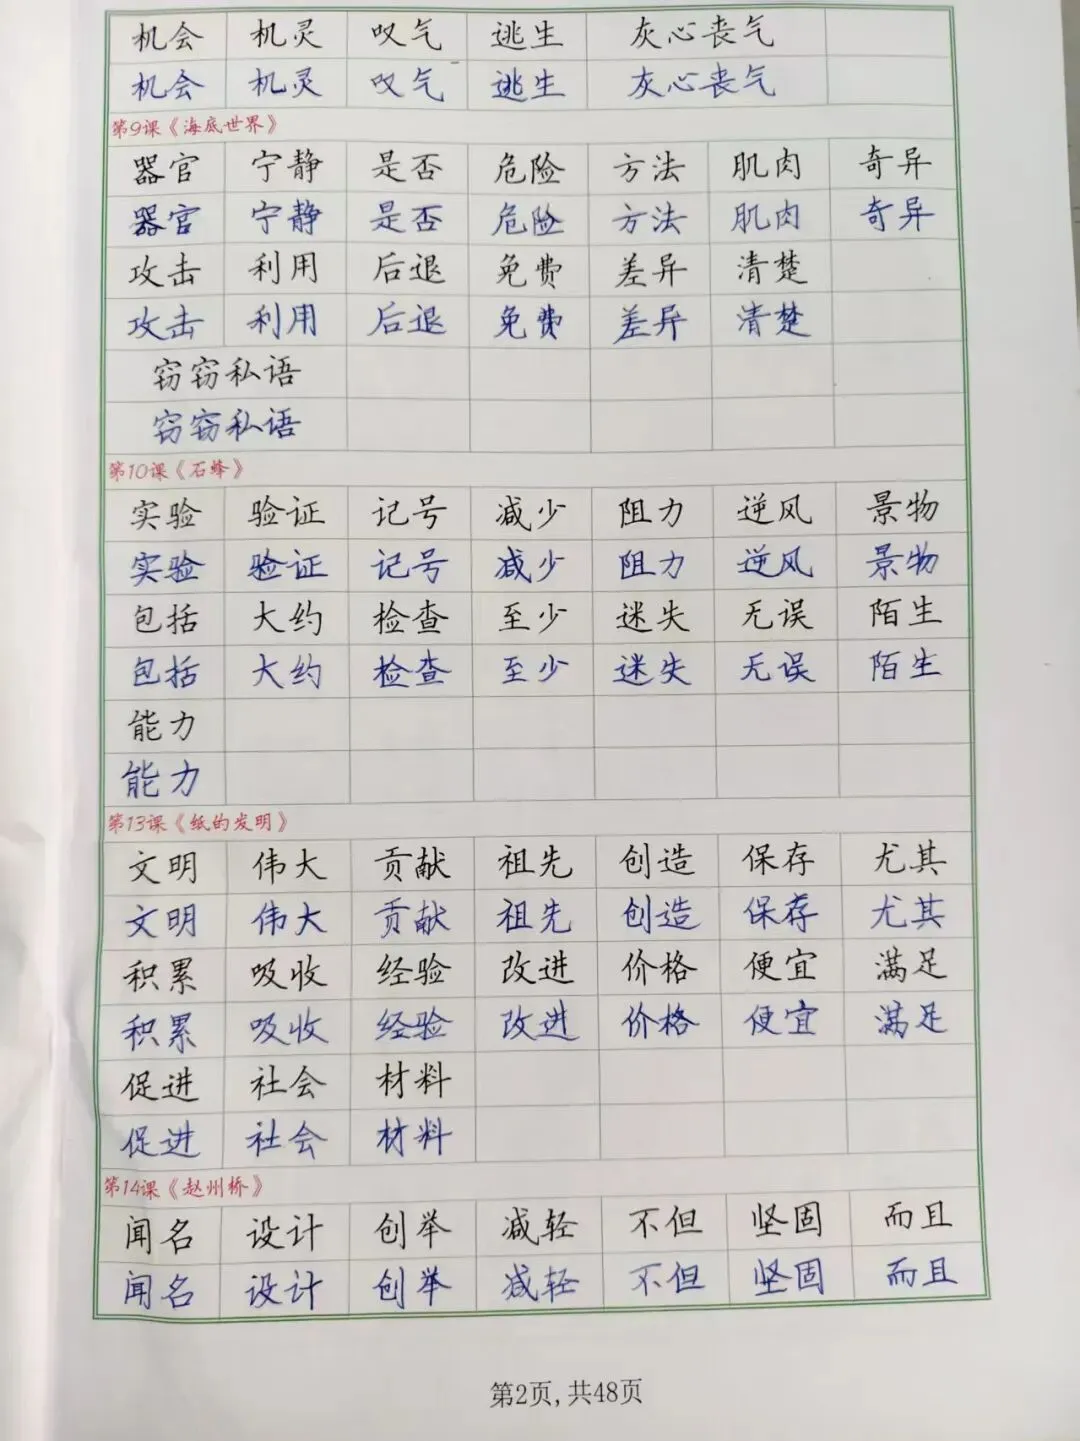 机会 机灵 叹气 逃生 灰心丧气
机会 机灵 叹气 逃生 灰心丧气
第9课《海底世界》
器官 宁静 是否 危险 方法 肌肉 奇异
器官 宁静 是否 危险 方法 肌肉 奇异
攻击 利用 后退 免费 差异 清楚
攻击 利用 后退 免费 差异 清楚
窃窃私语
窃窃私语
第10课《石蜂》
实验 验证 记号 减少 阻力 逆风 景物
实验 验证 记号 减少 阻力 逆风 景物
包括 大约 检查 至少 迷失 无误 陌生
包括 大约 检查 至少 迷失 无误 陌生
能力
能力
第13课《纸的发明》
文明 伟大 贡献 祖先 创造 保存 尤其
文明 伟大 贡献 祖先 创造 保存 尤其
积累 吸收 经验 改进 价格 便宜 满足
积累 吸收 经验 改进 价格 便宜 满足
促进 社会 材料
促进 社会 材料
第14课《赵州桥》
闻名 设计 创举 减轻 不但 坚固 而且
闻名 设计 创举 减轻 不但 坚固 而且
第2页,共48页